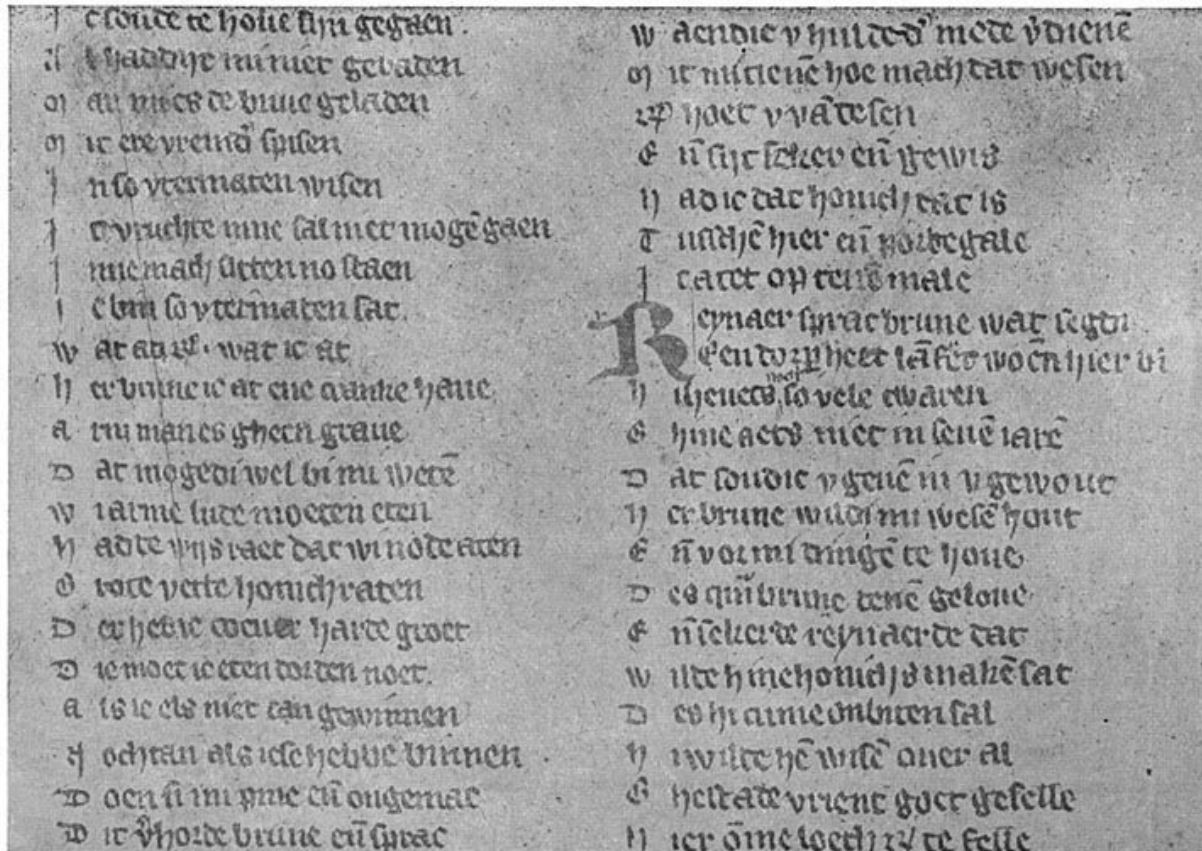 Jc soude te houe sijn gegaen.
haddijt mi niet geraden
Mar mi es de buuc geladen
Mit ere vremd' spisen
Jn so vtermaten wisen
Jc vruchte mine sal niet mogē gaen
Jnne mach sitten no staen
Jc bem so vtermaten sat.
Wat wat ic at
Her brune ic at ene cranke haue
Arm man es gheen graue
Dat mogedi wel bi mi wetē
Wi arme liede moeten eten
Hadde wijs raet dat wi node aten
Grote verte honichraten
Der hebic coeuer harde groet
Die moet ic eten dorden noet.
Als ic els niet can gewinnen
Nochtan als icse hebbe binnen
Doen si mi pine eñ ongemac
Dit v'horde brune eñ sprac
Waendie v hulde mede v'dienē
Mi dienē hoe mach dat wesen
hoet v va desen
Eñ sijt seker eñ gewis
Hadic dat honich dat is
Tusschē hier eñ portegale
Jc atet op teneͤ male
Reynaer sprac brune wat segdi
Een dorp heet lāfret woēn hier bi
Heues noch so vele twaren
Ghine aets niet in seuē iarē
Dat soudic v geuē in v gewout
Her brune wildi mi wesē hout
Eñ vor mi dingē te houe
Des quā brune tenē geloue
Eñ sekerde reynaerde dat
Wilde hine honichs makē sat
Des hi cume onbiten sal
Hi wilde hē wisē ouer al
Ghestade vrient goet geselle
Hier ōme loech te felle